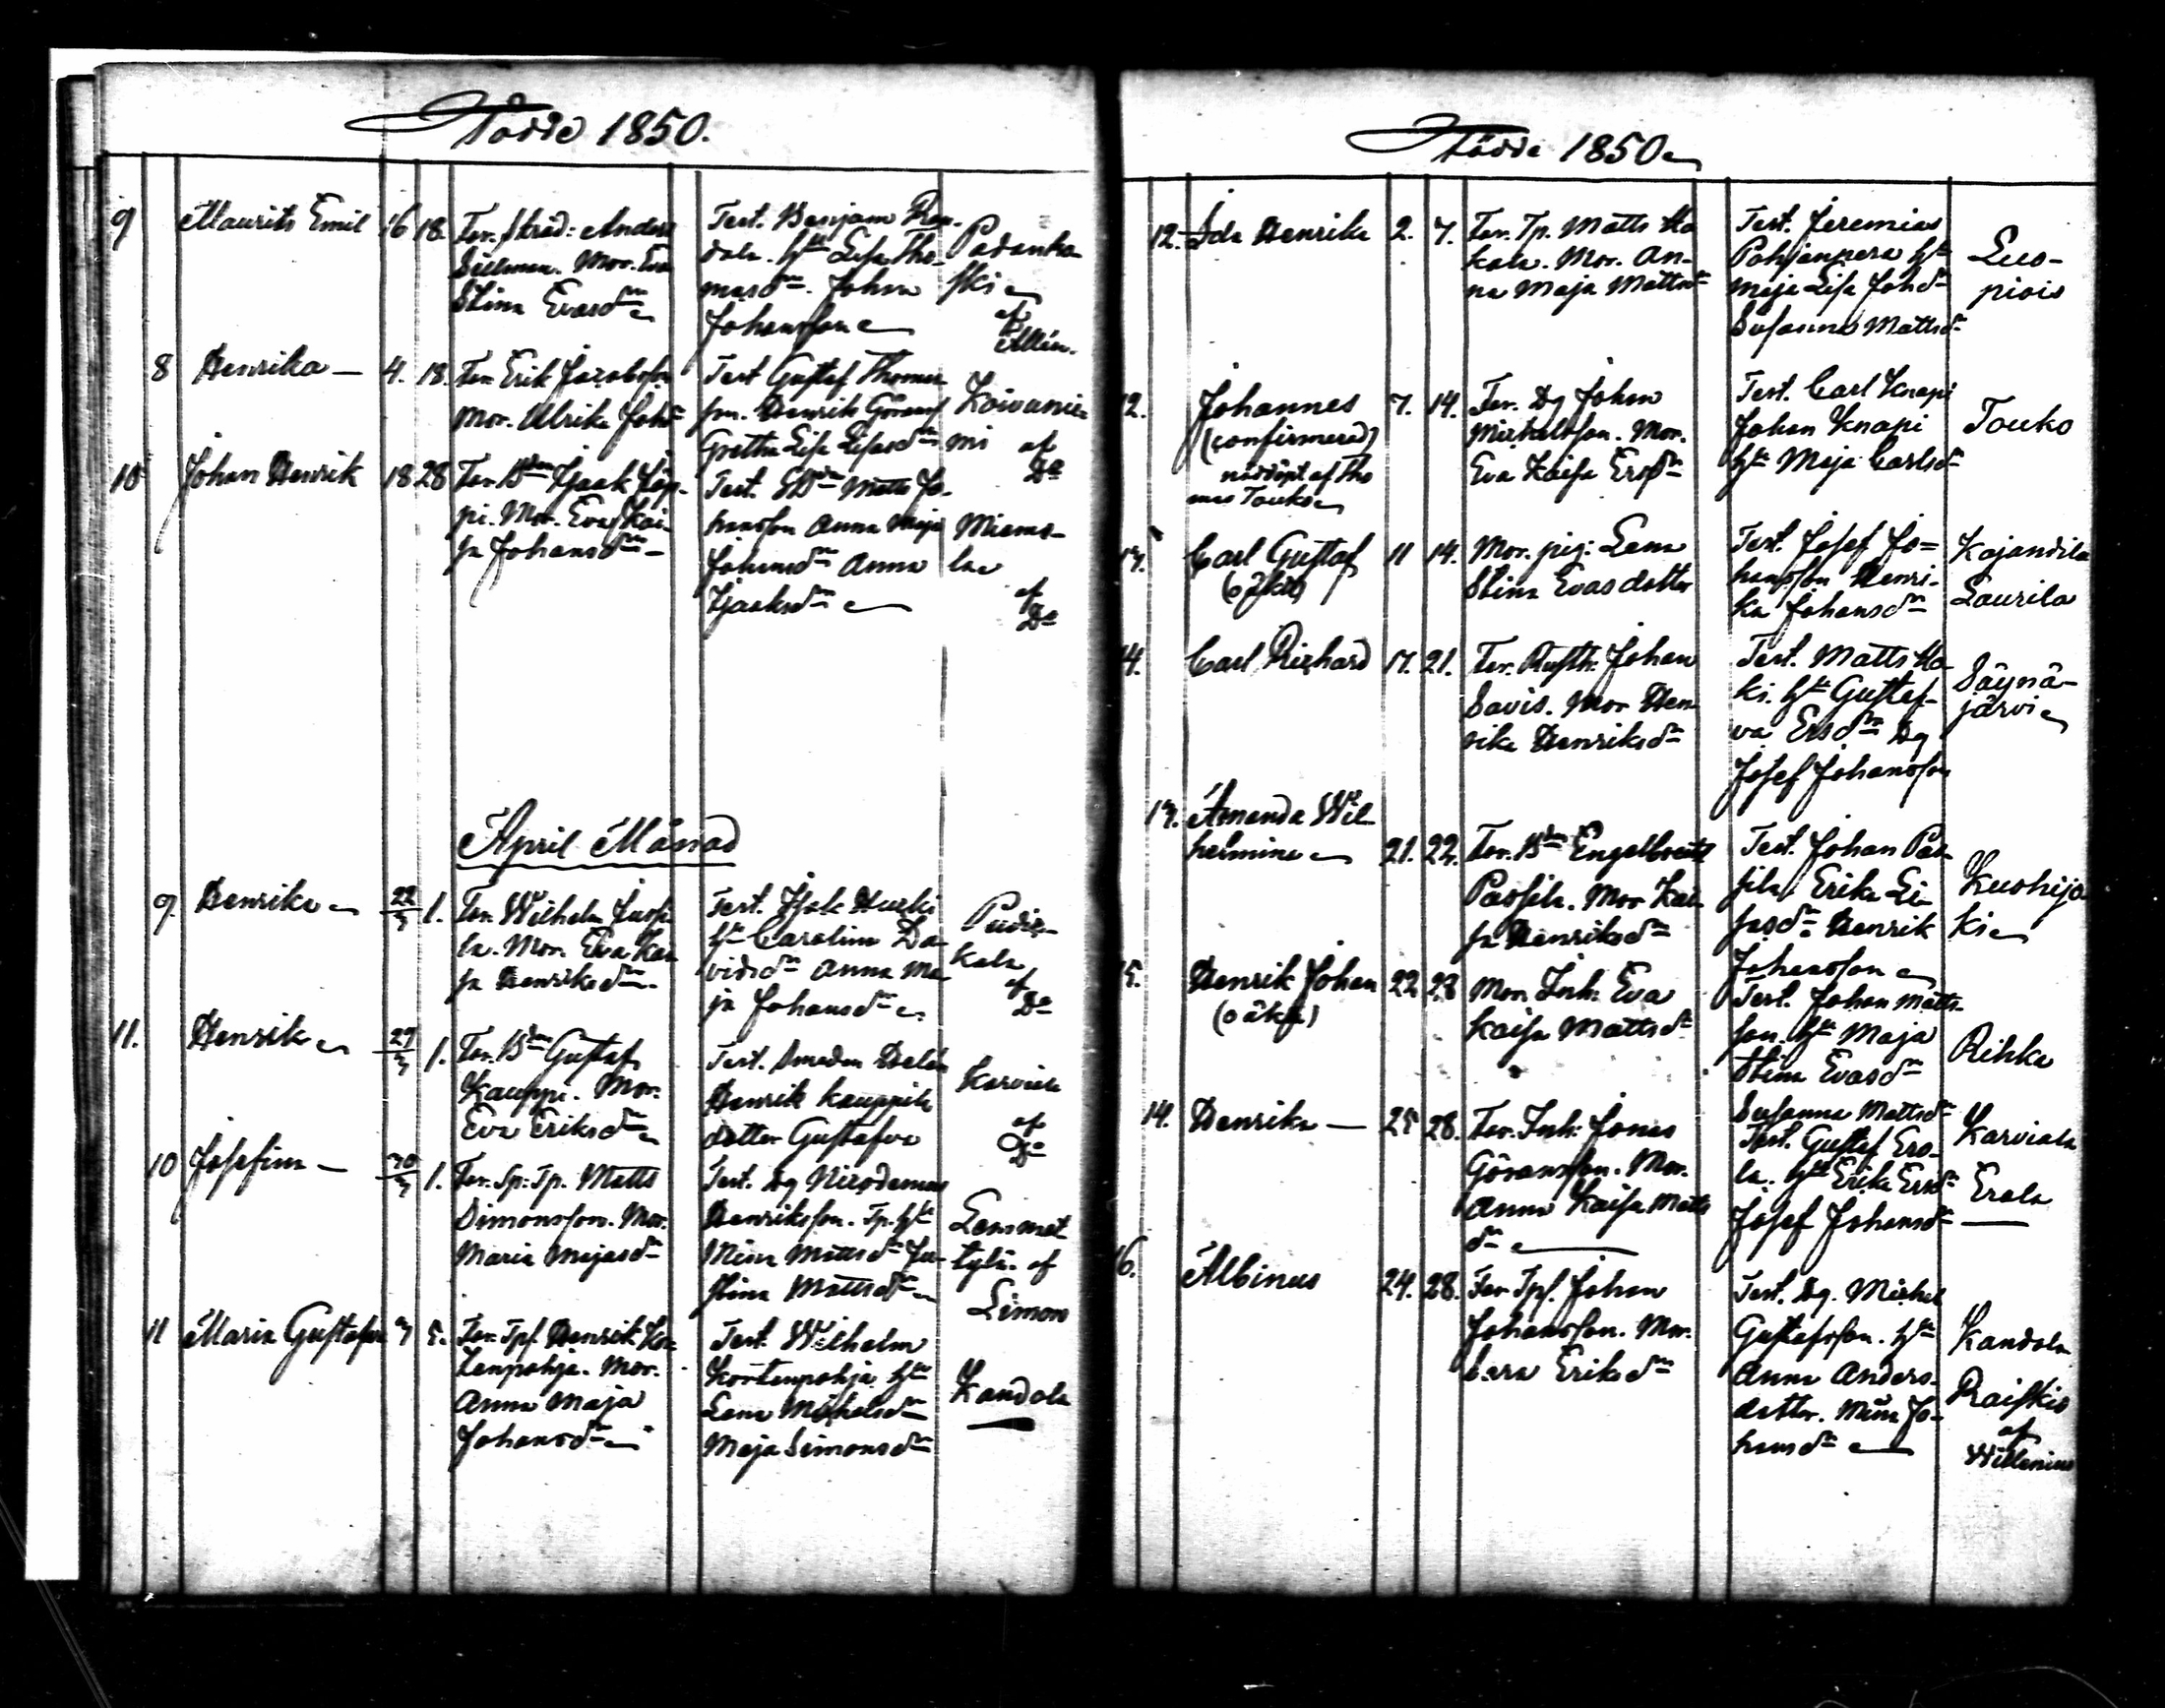 Födde 1850.
9 Maurits Emil 16 18. Far. Anders
Mor. Eva
Stina Evasdr
Test. Benjam
Lisa Tho-
masdr. Johan
Johansson
Padanko-
ski
af
8 Henrika — 4. 18. Far. Erik Jacobsson
Mor. Ulrika Johdr
Test Gustaf Thomas-
son. Henrik Göransson
Gretha Lisa Lisasdr
Koivunie-
mi af
Do
10 Johan Henrik 18 28 Far. Bdn Isaak Lop-
pi. Mor. Eva Kai-
sa Johansdr —
Test. Matts Jo-
hansson Anna Maja
Johansdr Anna
Isaaksdr
Miemo-
la
af
Do
April Månad
9. Henrika 22/3 1. Far. Wilhelm Jussi-
la. Mor. Eva Kai-
sa Henriksdr.
Test. Isak
Hu Carolina Da-
vidsdr Anna Ma-
ja Johansdr
kala
af
Do
11. Henrik 29/3 1. Far. Bdn Gustaf
Kauppi. Mor.
Eva Eriksdr
Test.
Henrik Kauppila
dotter Gustafva
Karviala
af
Do
10 Josefina — 30/3 1. Far. Sp. Tp. Matts
Simonsson. Mor.
Maria Majasdr
Test. Dg Nicodemus
Henriksson. Tp. Hu
Mina Mattsdr Ju-
stina Mattsdr
Lemmet-
tylä. af
Simon
11 Maria Gustafva 5. Far. Tpf Henrik Kor-
tenpohja. Mor.
Anna Maja
Johansdr
Test. Wilhelm
Kortenpohja Hu
Lena Michelsdr
Maja Simonsdr
Kandola
Födde 1850
12. Ida Henrika 2. 7. Far. Tp. Matts Ha-
kala. Mor. An-
na Maja Mattsdr
Test. Jeremias
Pohjanpera Hu
Maja Lisa Johdr
Susanna Mattsdr
Luo-
piois
12. Johannes 7. 14. Far. Dg Johan
(confirmerad) Michelsson. Mor.
nöddöpt af Tho Eva Kaisa Ersdr
mas Touko
Test. Carl Knapi
Johan Knapi
Hu Maja Carlsdr
Touko
13. Carl Gustaf 11 14. Mor. pig: Lena
(oäkta) Stina Evasdotter
Test. Josef Jo-
hansson Henri-
ka Johansdr
Kajandila
Laurila
14. Carl Richard 17. 21. Far. Rusth. Johan
Savis. Mor Hen-
rika Henriksdr
Test. Matts Ha-
ki. Hu Gustaf-
va Ersdr Dg
Josef Johansson
Säynä-
järvi
13. Amanda Wil-
helmina 21. 22. Far. Bdn Engelbrecht
Passila. Mor Kai-
sa Henriksdr
Test. Johan Pas-
sila Erika Li-
sasdr Henrik
Johansson
Kuohijo-
ki
15. Henrik Johan 22 28 Mor. Inh: Eva
(oäkta) Kaisa Mattsdr
Test. Johan Matts-
son. Hu Maja
Stina Evasdr
Susanna Mattsdr
Rihko
14. Henrika — 25 28. Far. Inh: Jonas
Göransson. Mor.
Anna Kaisa Matts
dr
Test. Gustaf Ero-
la. Hu Erika Ersdr
Josef Johansdr
Karviala
Erola
16. Albinus 24. 28. Far Tpf. Johan
Johansson. Mor.
Sara Eriksdr
Test. Dg. Michel
Gustafsson. Hu
Anna Anders-
dotter. Mina Jo-
hansdr
Kandola
Raiskio
af
Willenius